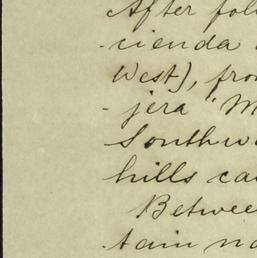 After foll
-cienda
West), fro
-jera "M
Southwe
hills ca
Betwee
tain no